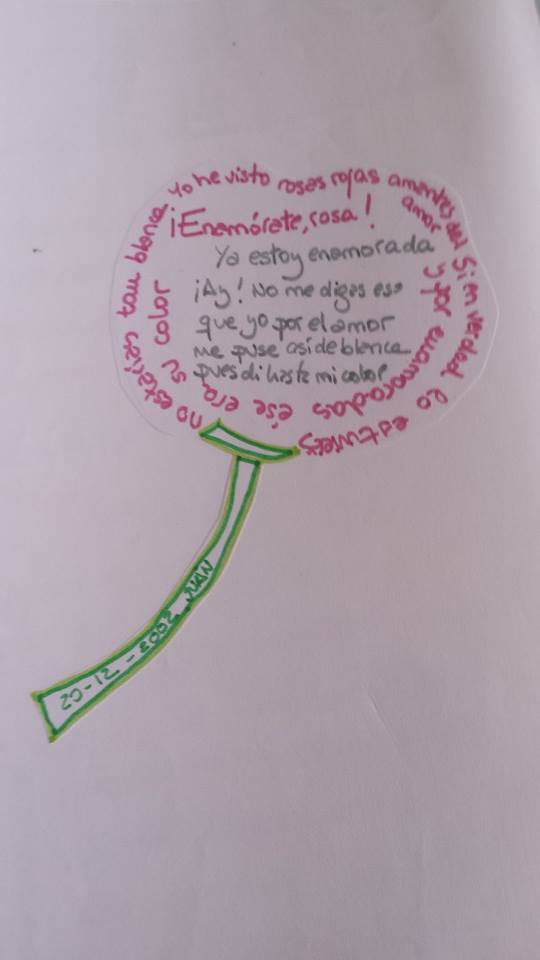 ¡Enamórate, rosa!
Ya estoy enamorada
Si en verdad lo
no estarías tan blanca. Yo he visto rosas rojas amantes del
amor y por enamoradas ese era su color
¡Ay! No me digas eso
que yo por el amor
me puse así de blanca
pues di hasta mi color
JUAN